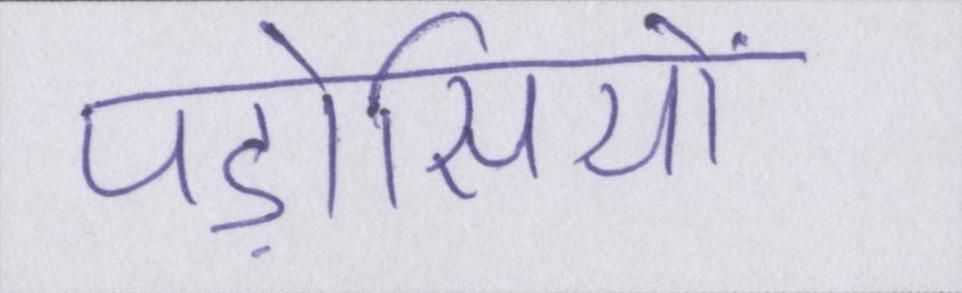 पड़ोसियों